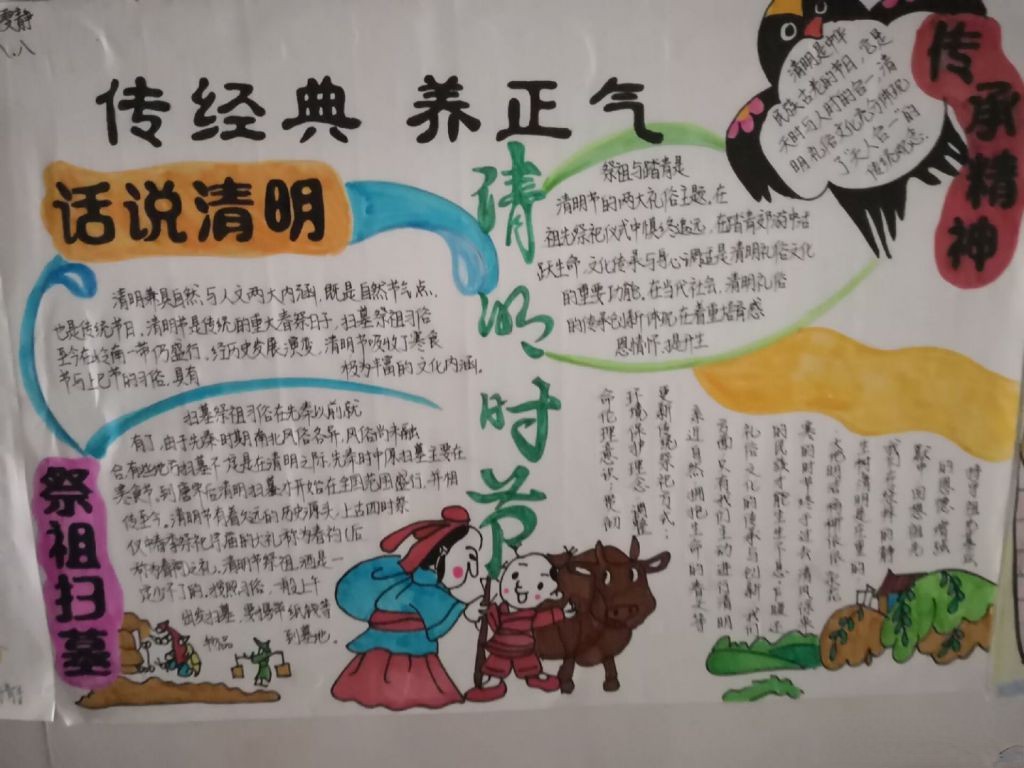 传经典 养正气
话说清明
清明兼具自然与人文两大内涵,既是自然节气点,
也是传统节日,清明节是传统的重大春祭日子,扫墓祭祖习俗
至今在岭南一带仍盛行,经历史发展演变,清明节吸收了寒食
节与上巳节的习俗,具有 极为丰富的文化内涵。
清明时节
祭祖与踏青是
清明节的两大礼俗主题,在
祖先祭祀仪式中慎终追远,在踏青郊游中
跃生命,文化传承与身心调适是清明礼俗文化
的重要功能,在当代社会,清明礼俗
的传承创新体现在着重培育感
恩情怀,提升生
清明是中华
民族古老的节日,它是
天时与人时的合一,清
明礼俗文化充分体现
了天人合一的
传统观念
传承精神
祭祖扫墓
扫墓祭祖习俗在先秦以前就
有了,由于先秦时期南北风俗各异,风俗尚未融
合,有些地方扫墓不一定是在清明之际,先秦时中原扫墓主要在
寒食节,到唐宋后清明扫墓才开始在全国范围盛行,并相
传至今。清明节有着久远的历史源头,上古四时祭
仪中春季祭祀宗庙的大礼称为春礿(后
称为春祠)之礼,清明节祭祖,酒是一
定少不了的,按照习俗,一般上午
出发扫墓,要携带纸钱等
物品 到墓地。
命伦理意识,贯彻
环境保护理念,调整
更新传统祭祀方式:
亲近自然,拥抱生命的春天等
方面,只有我们主动进行清明
礼俗文化的传承与创新,我们
的民族才能生生不息